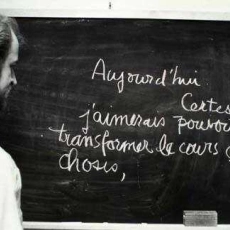 Aujourd'hui
Certes
j'aimerais pouvoir
transformer le cours
choses,